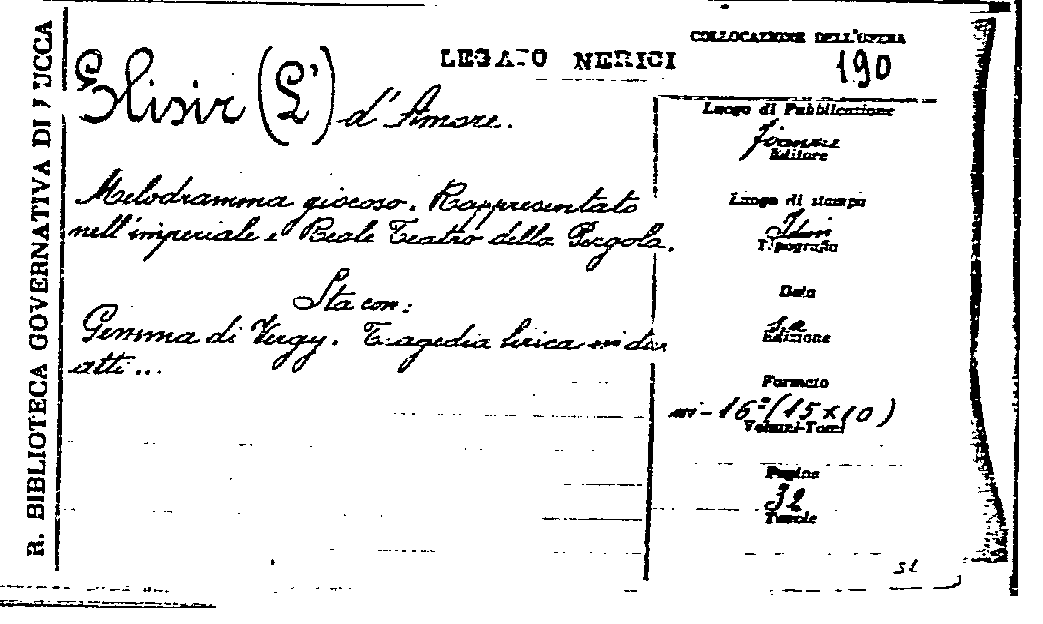 R. BIBLIOTECA GOVERNATIVA DI LUCCA
LEGATO NERICI
COLLOCAZIONE DELL'OPERA
190
Elisir (L') d'Amore.
Melodramma giocoso. Rappresentato
nell'imperiale e Reale Teatro della Pergola.
Sta con:
Gemma di Vergy. Tragedia lirica in due
atti...
Luogo di Pubblicazione
Firenze
Editore
Luogo di stampa
Idem
Tipografia
Data
s.a
Edizione
Formato
in-16º (15x10)
Volumi-Tomi
Pagine
32
Tavole